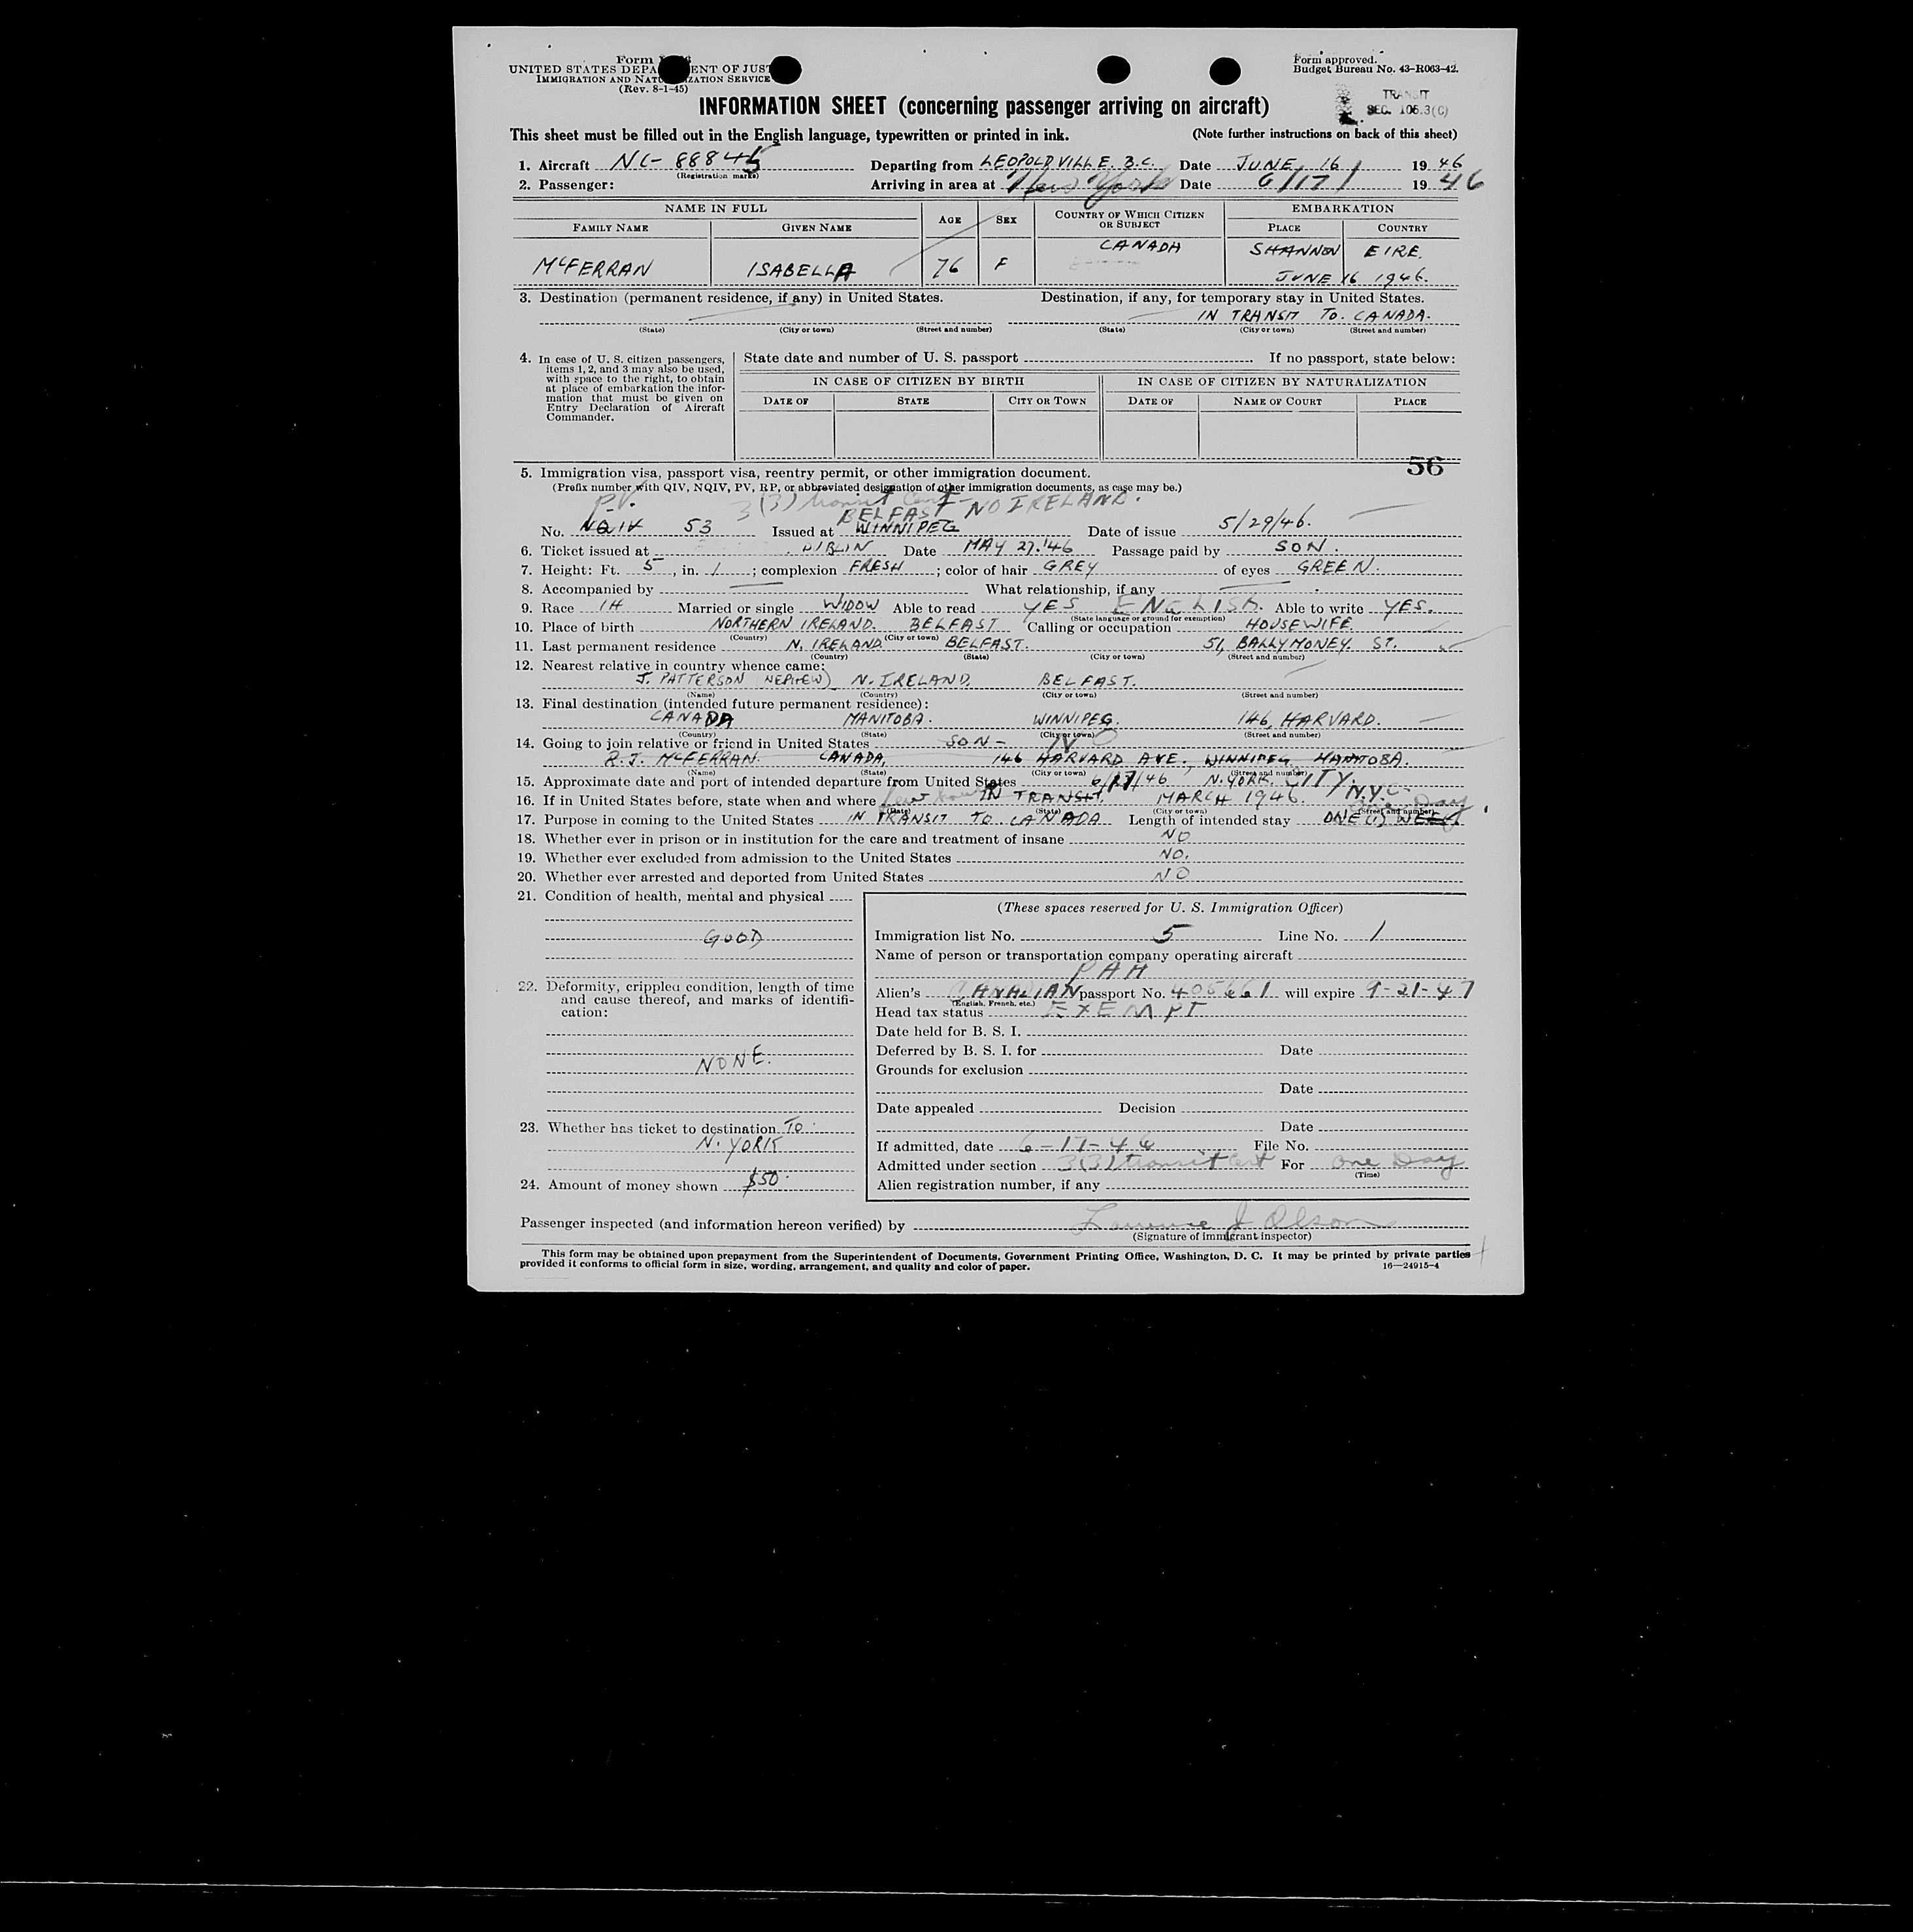 Form approved.
Budget Bureau No. 43-R063-42.
UNITED STATES DEPA ENT OF JUST
IMMIGRATION AND NATU IZATION SERVICE
(Rev. 8-1-45)
TRANSIT
SEC. 106.3(C)
INFORMATION SHEET (concerning passenger arriving on aircraft)
This sheet must be filled out in the English language, typewritten or printed in ink. (Note further instructions on back of this sheet)
1. Aircraft NC-88845 Departing from LEOPOLDVILLE. B.C. Date JUNE 16 1946
(Registration marks)
2. Passenger: Arriving in area at New York Date 6/17/ 1946
NAME IN FULL AGE SEX COUNTRY OF WHICH CITIZEN OR SUBJECT EMBARKATION
FAMILY NAME GIVEN NAME PLACE COUNTRY
McFERRAN ISABELLA 76 F CANADA SHANNON EIRE.
JUNE 16 1946.
3. Destination (permanent residence, if any) in United States. Destination, if any, for temporary stay in United States.
IN TRANSIT TO. CANADA.
(State) (City or town) (Street and number) (State) (City or town) (Street and number)
4. In case of U. S. citizen passengers, items 1, 2, and 3 may also be used, with space to the right, to obtain at place of embarkation the information that must be given on Entry Declaration of Aircraft Commander.
State date and number of U. S. passport If no passport, state below:
IN CASE OF CITIZEN BY BIRTH IN CASE OF CITIZEN BY NATURALIZATION
DATE OF STATE CITY OR TOWN DATE OF NAME OF COURT PLACE
56
5. Immigration visa, passport visa, reentry permit, or other immigration document.
(Prefix number with QIV, NQIV, PV, RP, or abbreviated designation of other immigration documents, as case may be.)
P.V. 3(3) transit Cert-
BELFAST NO IRELAND.
No. NQIV 53 Issued at WINNIPEG Date of issue 5/29/46.
6. Ticket issued at DUBLIN Date MAY 27.'46 Passage paid by SON.
7. Height: Ft. 5, in. 1; complexion FRESH; color of hair GREY of eyes GREEN.
8. Accompanied by What relationship, if any
9. Race IH Married or single WIDOW Able to read YES ENGLISH. Able to write YES.
(State language or ground for exemption)
10. Place of birth NORTHERN IRELAND. BELFAST Calling or occupation HOUSEWIFE.
(Country) (City or town)
11. Last permanent residence N. IRELAND. BELFAST. 51, BALLYMONEY. ST.
(Country) (State) (City or town) (Street and number)
12. Nearest relative in country whence came:
J. PATTERSON (NEPHEW) N. IRELAND. BELFAST.
(Name) (Country) (City or town) (Street and number)
13. Final destination (intended future permanent residence):
CANADA MANITOBA. WINNIPEG. 146, HARVARD.
(Country) (State) (City or town) (Street and number)
14. Going to join relative or friend in United States SON- NO
R.J. McFERRAN. CANADA, 146 HARVARD AVE., WINNIPEG MANITOBA.
(Name) (State) (City or town) (Street and number)
15. Approximate date and port of intended departure from United States 6/17/46 N. YORK. CITY. N.Y.
16. If in United States before, state when and where IN TRANSIT. MARCH 1946. N.Y.C.
(Date) (State) (City or town) (Street and number)
One Day
17. Purpose in coming to the United States IN TRANSIT TO CANADA Length of intended stay ONE (1) WEEK.
18. Whether ever in prison or in institution for the care and treatment of insane NO
19. Whether ever excluded from admission to the United States NO.
20. Whether ever arrested and deported from United States NO
21. Condition of health, mental and physical
GOOD
22. Deformity, crippled condition, length of time and cause thereof, and marks of identification:
NONE.
23. Whether has ticket to destination TO
N. YORK
24. Amount of money shown $50.
(These spaces reserved for U. S. Immigration Officer)
Immigration list No. 5 Line No. 1
Name of person or transportation company operating aircraft
PAA
Alien's CANADIAN passport No. 405661 will expire 9-21-47
(English, French, etc.)
Head tax status EXEMPT
Date held for B. S. I.
Deferred by B. S. I. for Date
Grounds for exclusion
Date
Date appealed Decision
Date
If admitted, date 6-17-46 File No.
Admitted under section 3(3) transit Cert For One Day
(Time)
Alien registration number, if any
Passenger inspected (and information hereon verified) by Lawrence J Olson
(Signature of immigrant inspector)
This form may be obtained upon prepayment from the Superintendent of Documents, Government Printing Office, Washington, D. C. It may be printed by private parties
provided it conforms to official form in size, wording, arrangement, and quality and color of paper. 16—24915-4